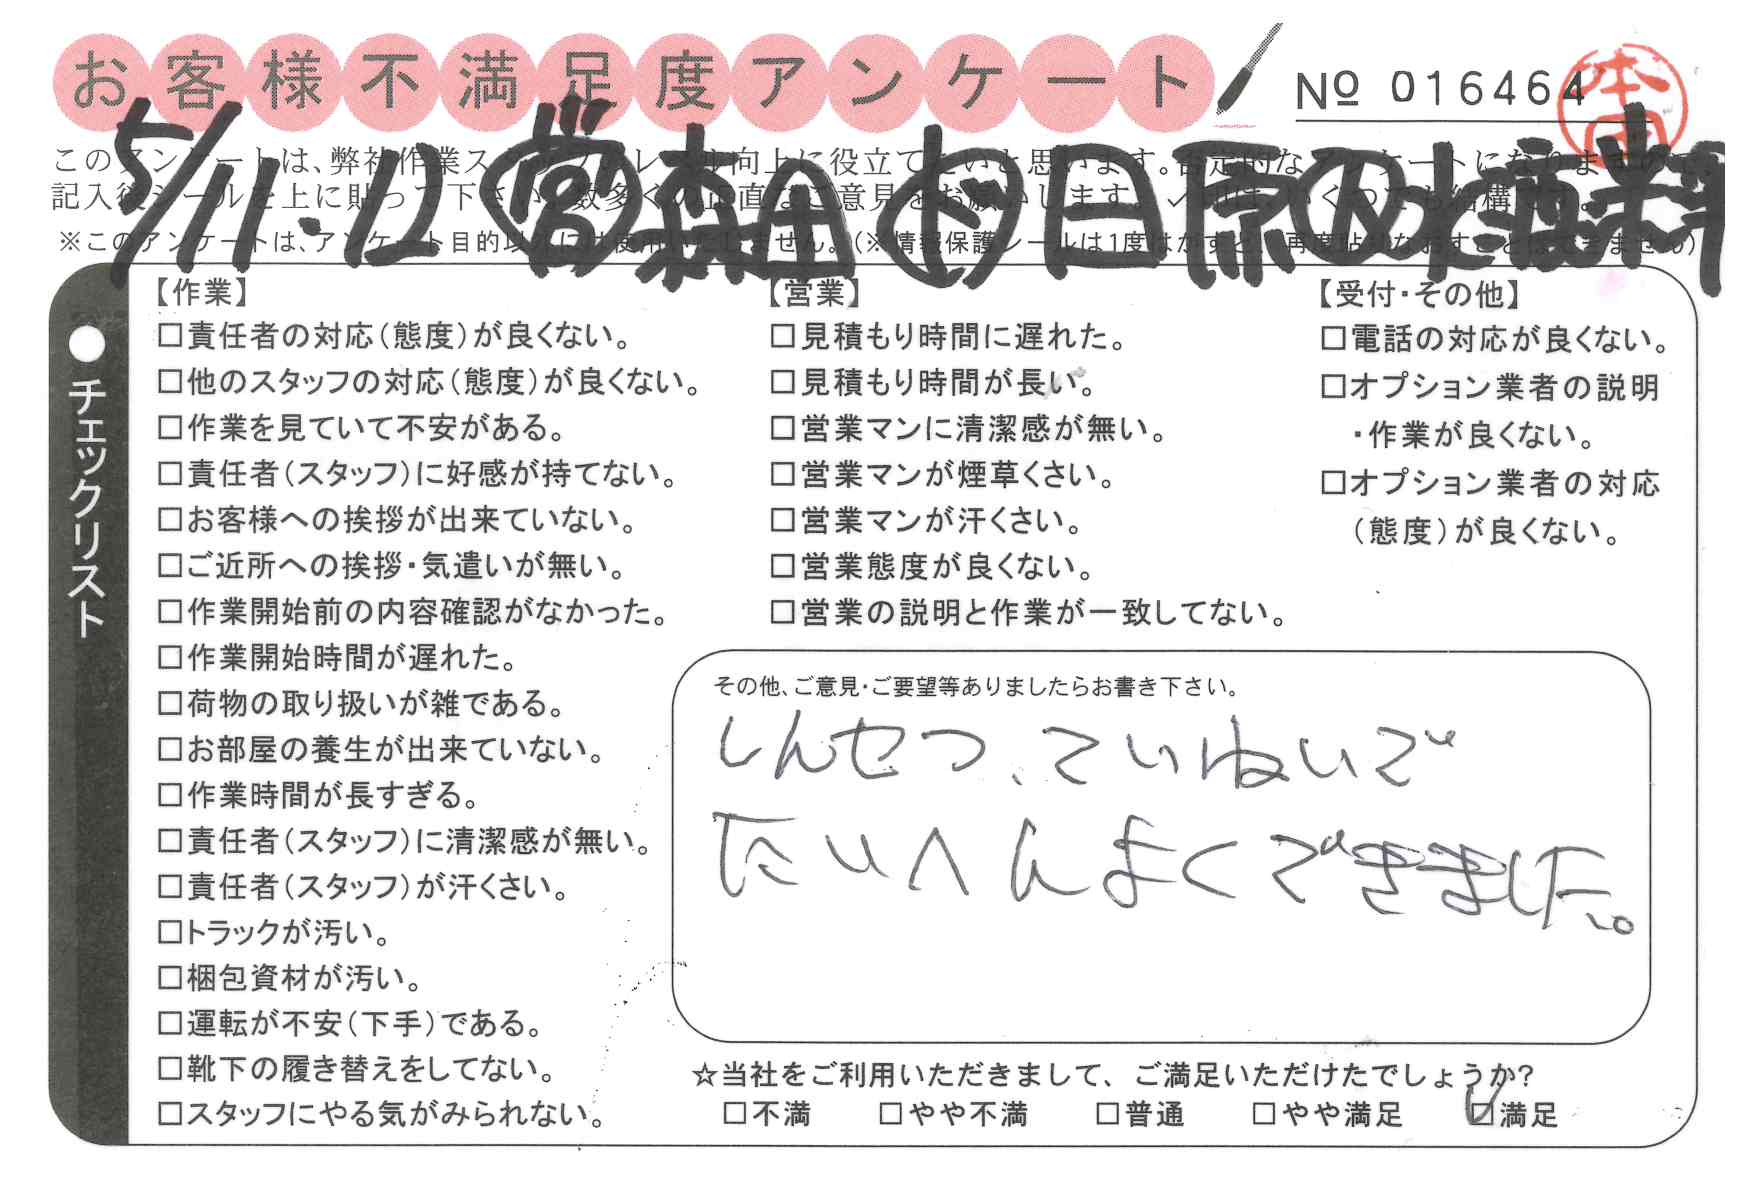 お客様不満足度アンケート
№ 016464
本田
5/11・12 営 森田 作 日原
このアンケートは、弊社作業スタッフのレベル向上に役立てたいと思います。否定的なアンケートになりますので、
記入後シールを上に貼って下さい。数多くの正直なご意見をお願いします。
※このアンケートは、アンケート目的以外には使用いたしません。(※情報保護シールは1度はがすと、再度貼りなおすことはできません)
●チェックリスト
【作業】
□責任者の対応(態度)が良くない。
□他のスタッフの対応(態度)が良くない。
□作業を見ていて不安がある。
□責任者(スタッフ)に好感が持てない。
□お客様への挨拶が出来ていない。
□ご近所への挨拶・気遣いが無い。
□作業開始前の内容確認がなかった。
□作業開始時間が遅れた。
□荷物の取り扱いが雑である。
□お部屋の養生が出来ていない。
□作業時間が長すぎる。
□責任者(スタッフ)に清潔感が無い。
□責任者(スタッフ)が汗くさい。
□トラックが汚い。
□梱包資材が汚い。
□運転が不安(下手)である。
□靴下の履き替えをしてない。
□スタッフにやる気がみられない。
【営業】
□見積もり時間に遅れた。
□見積もり時間が長い。
□営業マンに清潔感が無い。
□営業マンが煙草くさい。
□営業マンが汗くさい。
□営業態度が良くない。
□営業の説明と作業が一致してない。
【受付・その他】
□電話の対応が良くない。
□オプション業者の説明
・作業が良くない。
□オプション業者の対応
(態度)が良くない。
その他、ご意見・ご要望等ありましたらお書き下さい。
しんせつ、ていねいで
たいへんよくできました。
☆当社をご利用いただきまして、ご満足いただけたでしょうか?
□不満 □やや不満 □普通 □やや満足 ☑満足